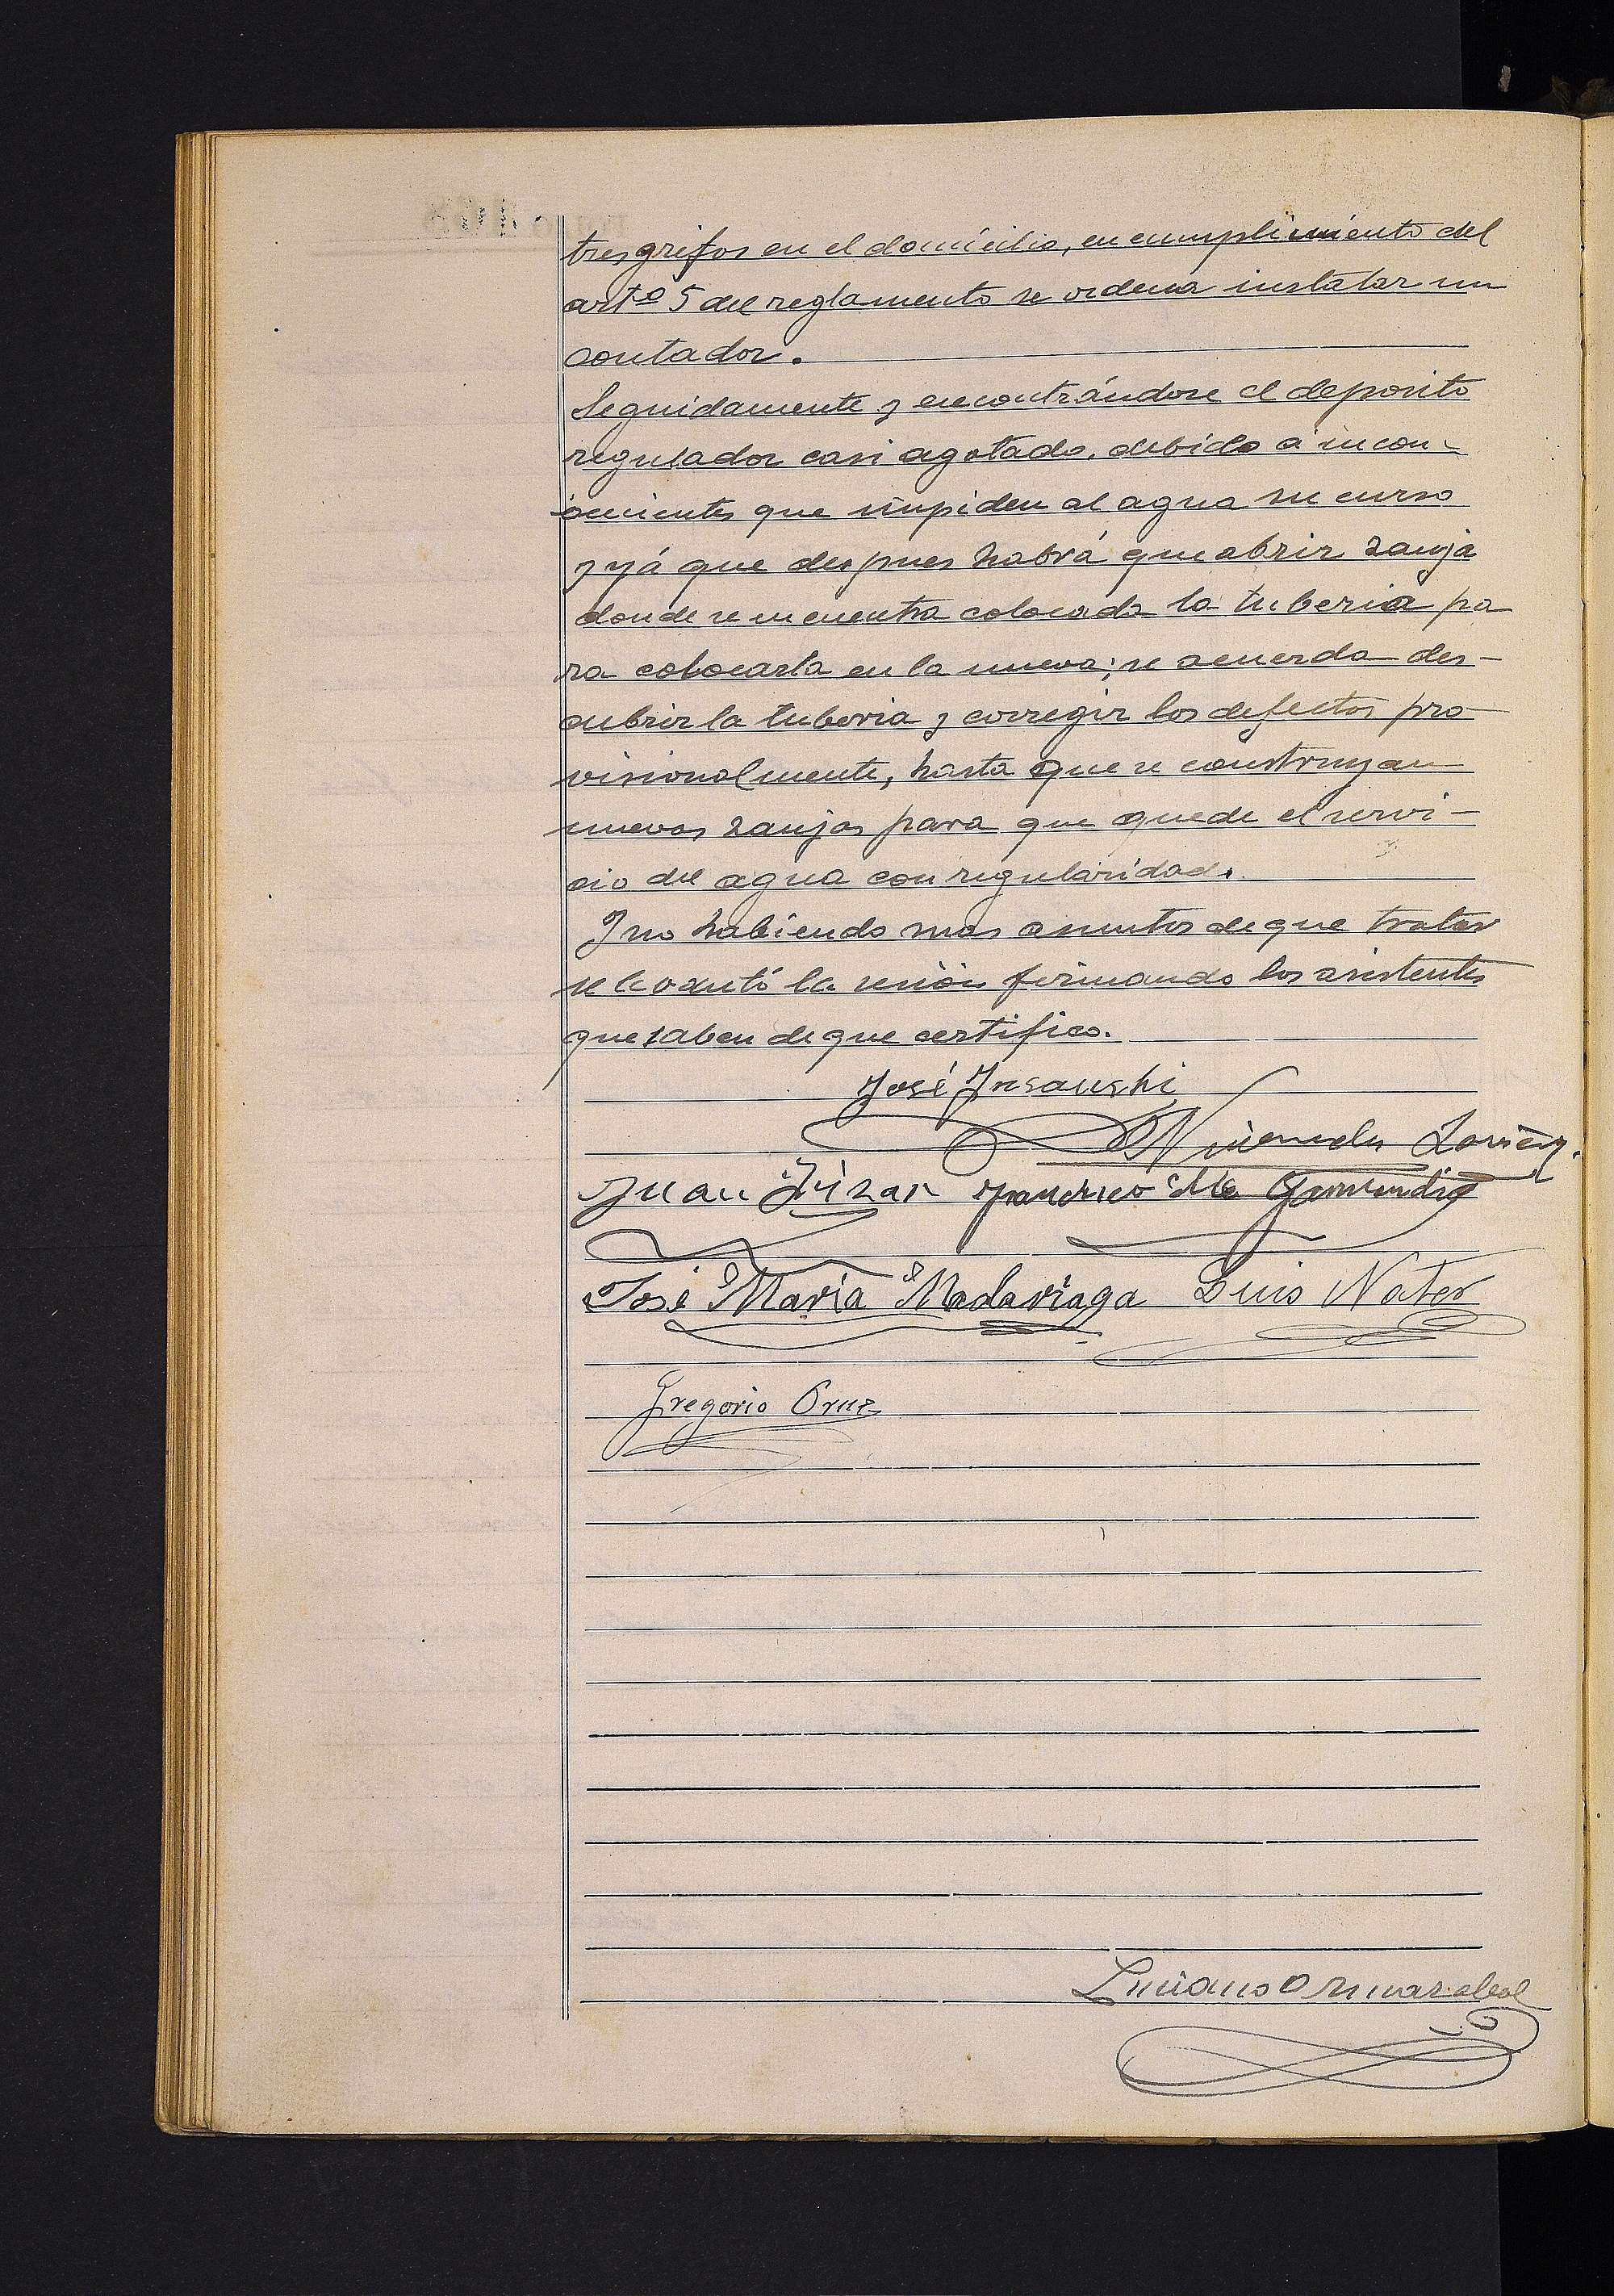 tres grifos en el domicilio, en cumplimiento del
artº 5 del reglamento se ordena instalar un
contador.
Seguidamente y encontrándose el deposito
regulador casi agotado, debido a incon-
que impiden al agua su curso
y yá que despues habrá que abrir zanja
donde se encuentra colocada la tuberia pa
ra colocarla en la nueva; se acuerda des-
cubrir la tuberia y corregir los defectos pro-
visionalmente, hasta que se construyan
nuevas zanjas para que quede el servi-
cio del agua con regularidad.
Y no habiendo mas asuntos de que tratar
se levantó la sesión firmando los asistentes
que saben de que certifico.
José Insausti
Juan Francisco
José Maria Madariaga Luis
Gregorio Oruz
Luciano Ormazabal